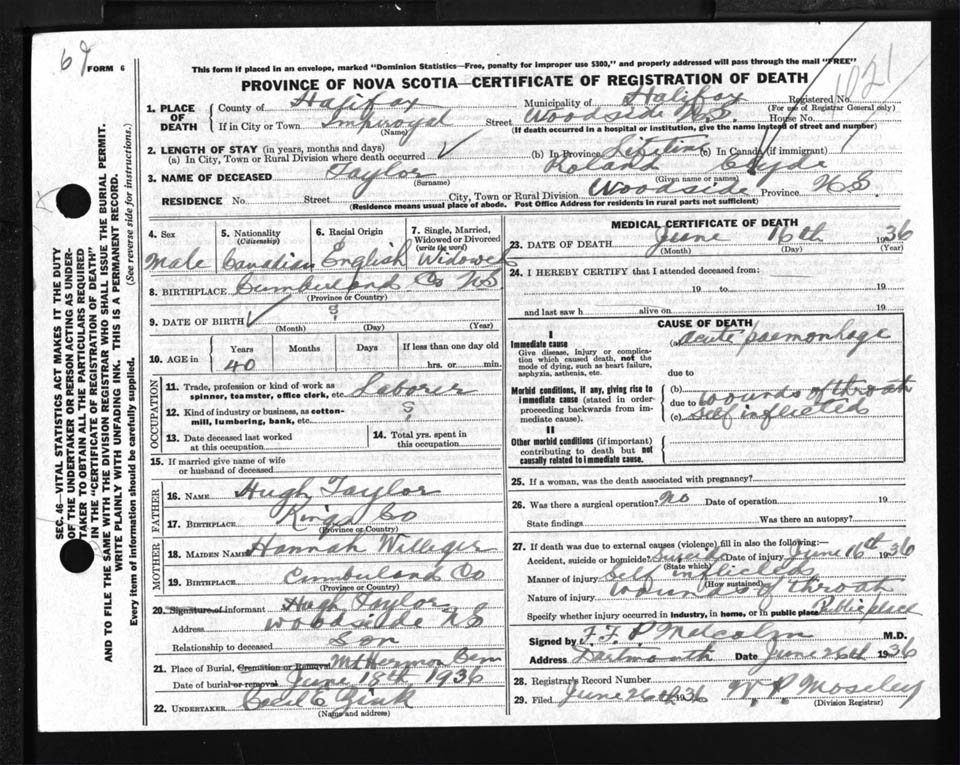 69
FORM 6
This form if placed in an envelope, marked "Dominion Statistics—Free, penalty for improper use $300," and properly addressed will pass through the mail "FREE"
PROVINCE OF NOVA SCOTIA—CERTIFICATE OF REGISTRATION OF DEATH
1921
1. PLACE OF DEATH
County of Halifax Municipality of Halifax Registered No.
(For use of Registrar General only)
If in City or Town Imperoyal Street Woodside N.S. House No.
(Name) (If death occurred in a hospital or institution, give the name instead of street and number)
2. LENGTH OF STAY (in years, months and days)
(a) In City, Town or Rural Division where death occurred (b) In Province Lifetime (c) In Canada (if immigrant)
3. NAME OF DECEASED Taylor Roland Clyde
(Surname) (Given name or names)
RESIDENCE No. Street City, Town or Rural Division Woodside Province N.S.
(Residence means usual place of abode. Post Office Address for residents in rural parts not sufficient)
SEC. 46—VITAL STATISTICS ACT MAKES IT THE DUTY
OF THE UNDERTAKER OR PERSON ACTING AS UNDER-
TAKER TO OBTAIN ALL THE PARTICULARS REQUIRED
IN THE "CERTIFICATE OF REGISTRATION OF DEATH"
AND TO FILE THE SAME WITH THE DIVISION REGISTRAR WHO SHALL ISSUE THE BURIAL PERMIT.
WRITE PLAINLY WITH UNFADING INK. THIS IS A PERMANENT RECORD.
Every item of Information should be carefully supplied. (See reverse side for instructions.)
4. Sex
Male
5. Nationality
(Citizenship)
Canadian
6. Racial Origin
English
7. Single, Married,
Widowed or Divorced
(write the word)
Widowed
8. BIRTHPLACE Cumberland Co N.S
(Province or County)
9. DATE OF BIRTH
(Month) (Day) (Year)
10. AGE in
Years Months Days If less than one day old
40 hrs. or min.
OCCUPATION
11. Trade, profession or kind of work as
spinner, teamster, office clerk, etc. Laborer
12. Kind of industry or business, as cotton-
mill, lumbering, bank, etc.
13. Date deceased last worked
at this occupation
14. Total yrs. spent in
this occupation
15. If married give name of wife
or husband of deceased
FATHER
16. NAME Hugh Taylor
17. BIRTHPLACE Kings Co
(Province or Country)
MOTHER
18. MAIDEN NAME Hannah
19. BIRTHPLACE Cumberland Co
(Province or Country)
20. Signature of informant Hugh Taylor
Address Woodside N.S
Relationship to deceased Son
21. Place of Burial, Cremation or Removal Mt Hermon Cem
Date of burial or removal June 18th 1936
22. UNDERTAKER Cecil E Zink
(Name and address)
MEDICAL CERTIFICATE OF DEATH
23. DATE OF DEATH June 16th 1936
(Month) (Day) (Year)
24. I HEREBY CERTIFY that I attended deceased from:
19 to 19
and last saw h alive on 19
CAUSE OF DEATH
I
Immediate cause
Give disease, injury or complica-
tion which caused death, not the
mode of dying, such as heart failure,
asphyxia, asthenia, etc.
(a) acute
due to
Morbid conditions, if any, giving rise to
immediate cause (stated in order-
proceeding backwards from im-
mediate cause).
(b)
due to wounds of throat
(c) Self inflicted
II
Other morbid conditions (if important)
contributing to death but not
causally related to immediate cause.
25. If a woman, was the death associated with pregnancy?
26. Was there a surgical operation? No Date of operation 19
State findings Was there an autopsy?
27. If death was due to external causes (violence) fill in also the following:—
Accident, suicide or homicide? Suicide Date of injury June 16th 1936
(State which)
Manner of injury Self inflicted
(How sustained)
Nature of injury Wounds of throat
Specify whether injury occurred in Industry, in home, or in public place Public place
Signed by F. F. P Malcolm M.D.
Address Dartmouth Date June 26th 1936
28. Registrar's Record Number
29. Filed June 26th 1936 W. P. Moseley
(Division Registrar)